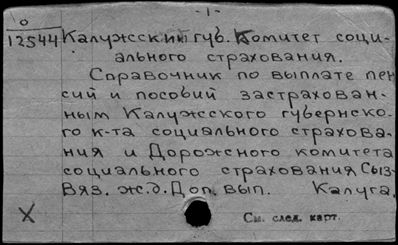 - 1 -
О
12544 Калужский губ. Комитет соци-
ального страхования.
Справочник по выплате пен
сий и пособий застрахован-
ным Калужского губернско-
го к-та социального страхова-
ния и Дорожного комитета
социального страхования Сыз-
Вяз. ж.д. Доп. вып. Калуга.
X
См. след. карт.